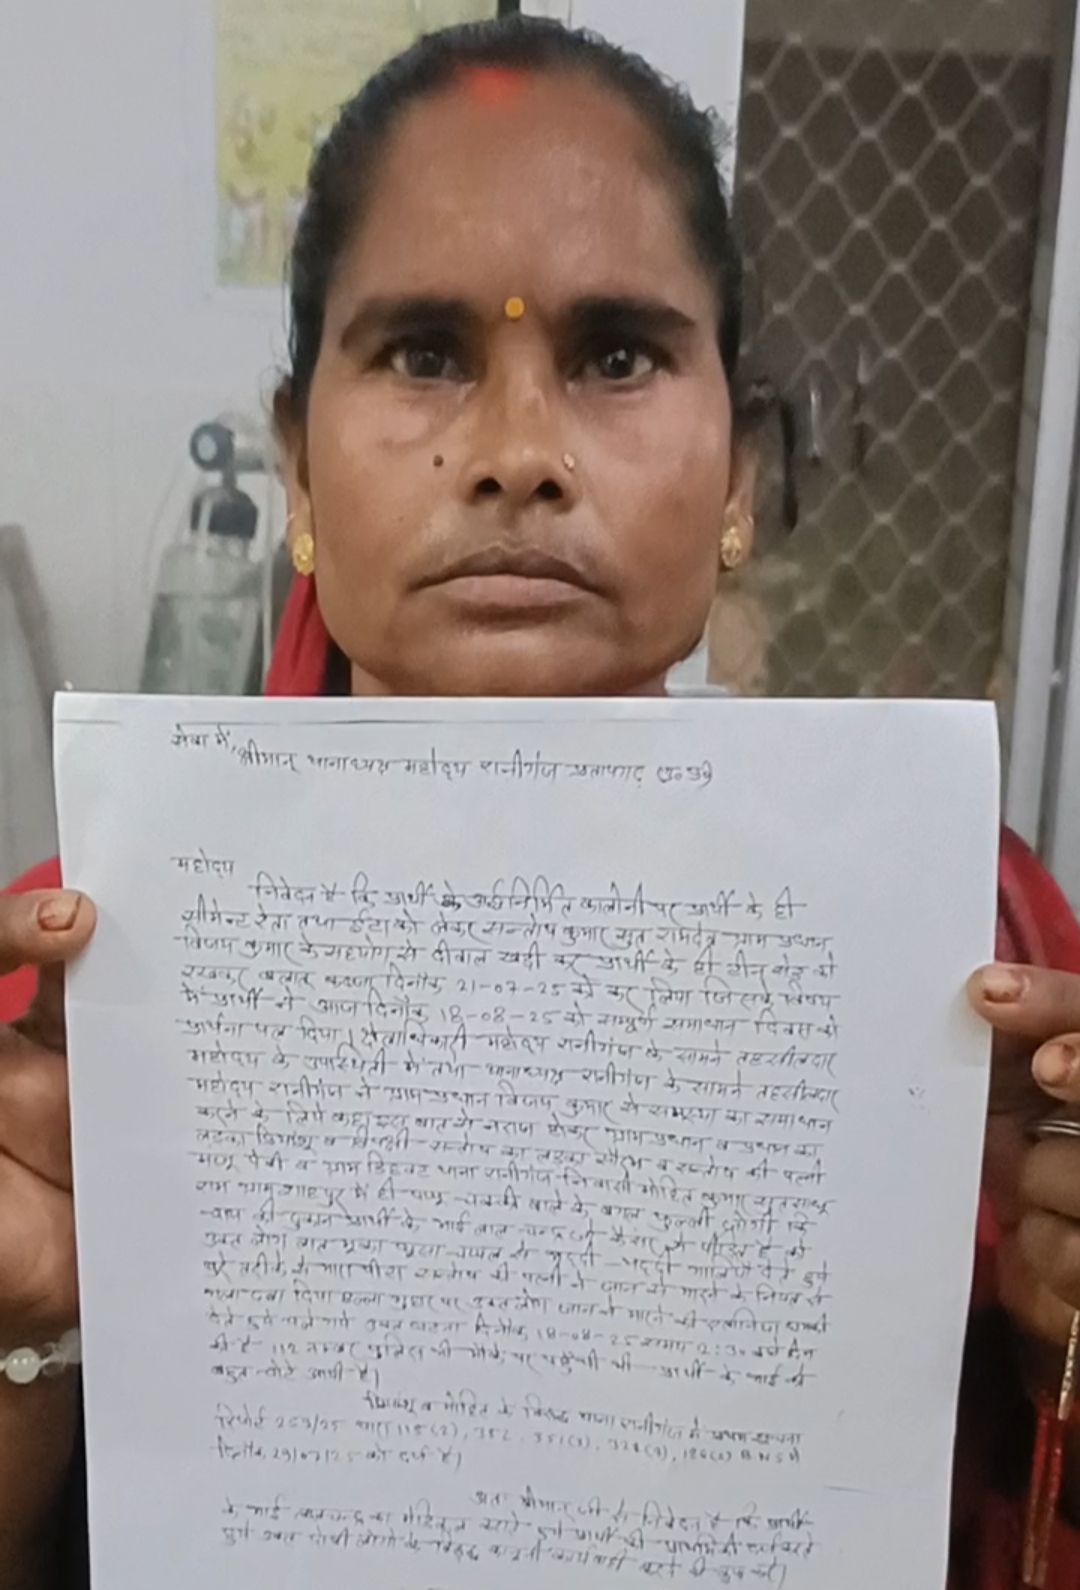 सेवा में,
श्रीमान् थानाध्यक्ष महोदय रानीगंज प्रतापगढ़ उ०प्र०
महोदय
निवेदन है कि प्रार्थी के अर्धनिर्मित कालोनी पर प्रार्थी के ही
सीमेन्ट रेता तथा ईटा को लेकर सन्तोष कुमार सुत रामदेव ग्राम प्रधान
विजय कुमार के सहयोग से दीवाल खड़ी कर प्रार्थी के ही टीन शेड को
रखकर बलात कब्जा दिनाँक 21-07-25 को कर लिया जिसके विषय
में प्रार्थी ने आज दिनाँक 18-08-25 को सम्पूर्ण समाधान दिवस को
प्रार्थना पत्र दिया। क्षेत्राधिकारी महोदय रानीगंज के सामने तहसीलदार
महोदय के उपस्थिती में तथा थानाध्यक्ष रानीगंज के सामने तहसीलदार
महोदय रानीगंज ने ग्राम प्रधान विजय कुमार से समस्या का समाधान
करने के लिये कहा इस बात से नराज होकर ग्राम प्रधान व प्रधान का
लड़का प्रियांशू व विपक्षी सन्तोष का लड़का सौरभ व सन्तोष की पत्नी
व ग्राम थाना रानीगंज निवासी मोहित कुमार सुत
राम ग्राम शाहपुर में ही चक्की वाले के बगल
चाय की दुकान प्रार्थी के भाई लाल चन्द्र जो कैंसर से पीड़ित है को
उक्त लोग लात मुक्का चप्पल से भद्दी-भद्दी गालियाँ देते हुये
बुरे तरीके से मारा पीटा सन्तोष की पत्नी ने जान से मारने के नियत से
गला दबा दिया हल्ला गुहार पर उक्त लोग जान से मारने की धमकी
देते हुये चले गये उक्त घटना दिनाँक 18-08-25 समय 2:30 बजे दिन
की है 112 नम्बर पुलिस भी मौके पर पहुँची थी प्रार्थी के भाई को
बहुत चोटे आयी है।
प्रियांशू व मोहित के विरुद्ध थाना रानीगंज में प्रथम सूचना
रिपोर्ट 253/25 धारा 115(2), 352, 351(3), BNS में
दिनाँक 29/07/25 को दर्ज है।
अतः श्रीमान जी से निवेदन है कि प्रार्थी
के भाई लालचन्द्र का मेडिकल कराते हुये प्रार्थी की प्राथमिकी दर्ज करते
हुये उक्त दोषी लोगो के विरुद्ध कानूनी कार्यवाही करने की कृपा करें।